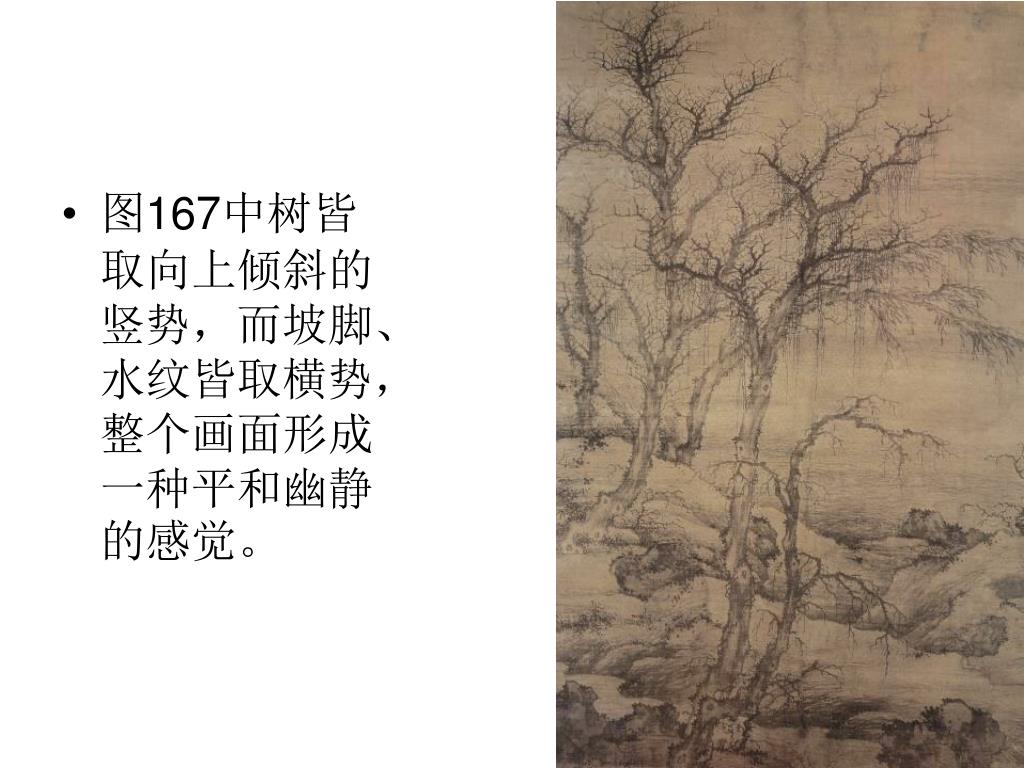 • 图167中树皆
取向上倾斜的
竖势，而坡脚、
水纹皆取横势，
整个画面形成
一种平和幽静
的感觉。